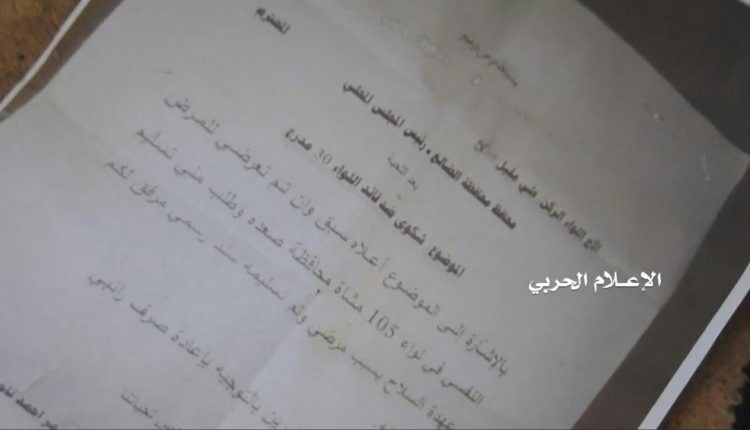 بسم الله الرحمن الرحيم
الأخ اللواء الركن علي مقبل صالح
المحترم
محافظ محافظة الضالع - رئيس المجلس المحلي
بعد التحية
الموضوع شكوى ضد قائد اللواء 30 مدرع
بالإشارة إلى الموضوع أعلاه سبق وان تم تعرضي للمرض
النفسي في لواء 105 مشاة محافظة صعده وطلب مني تسليم
عهدة السلاح بسبب مرضي وتم تسليمه سند رسمي مرفق لكم
بالتوجيه بإعادة صرف راتبي
تحيتنا
احمد
الإعلام الحربي